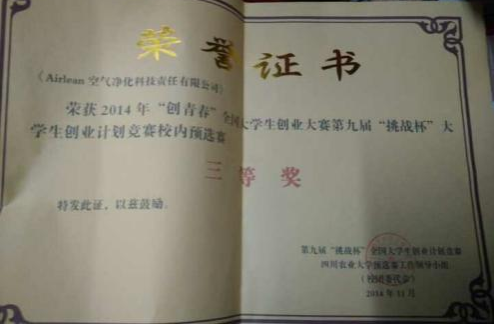 荣誉证书
《Airlean 空气净化科技责任有限公司》
荣获2014年“创青春”全国大学生创业大赛第九届“挑战杯”大
学生创业计划竞赛校内预选赛
三等奖
特发此证，以兹鼓励。
第九届“挑战杯”全国大学生创业计划竞赛
四川农业大学预选赛工作领导小组
（校团委代章）
2014年11月